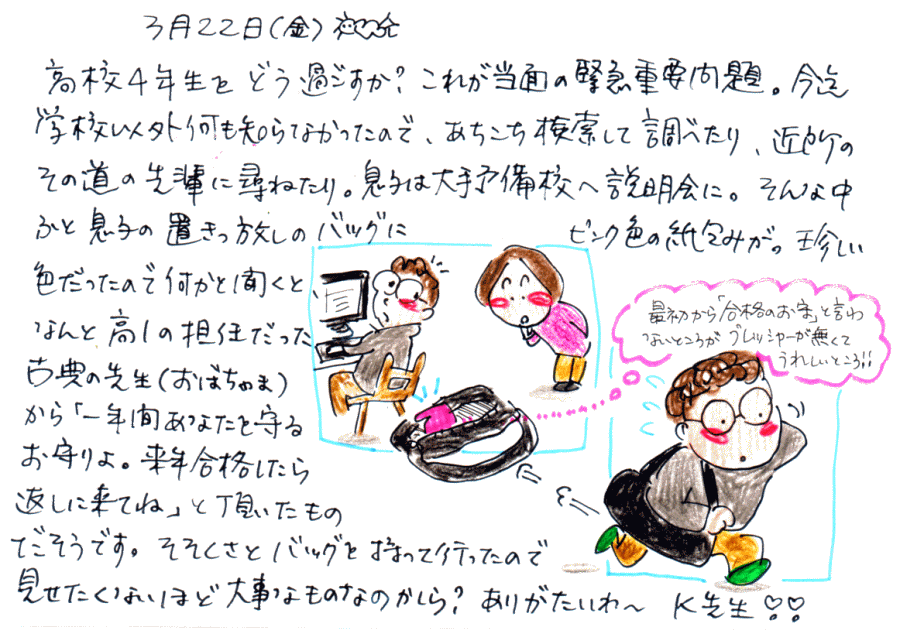 3月22日(金)
高校4年生をどう過ごすか?これが当面の緊急重要問題。今迄
学校以外何も知らなかったので、あちこち検索して調べたり、近所の
その道の先輩に尋ねたり。息子は大手予備校へ説明会に。そんな中
ふと息子の置きっ放しのバッグに ピンク色の紙包みがっ 珍しい
色だったので何かと聞くと
なんと高1の担任だった
古典の先生(おばちゃま)
から「一年間あなたを守る
お守りよ。来年合格したら
返しに来てね」と頂いたもの
だそうです。そそくさとバッグを持って行ったので
見せたくないほど大事なものなのかしら?ありがたいわ〜 K先生♡♡
最初から「合格のお守」と言わ
ないところがプレッシャーが無くて
うれしいところ!!